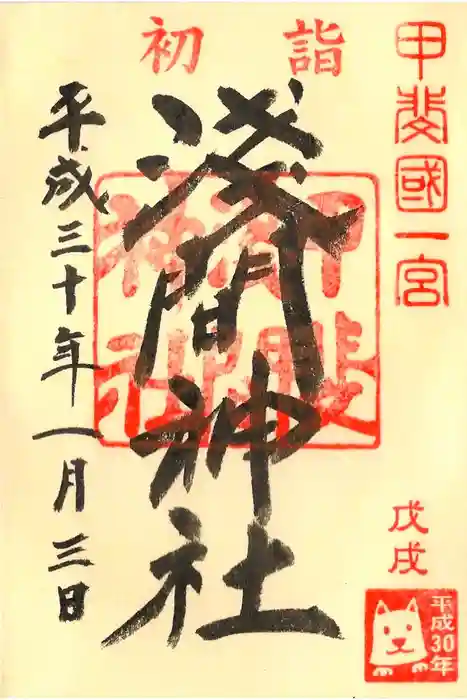 初詣
甲斐國一宮
淺間神社
平成三十年一月三日
戊戌
平成30年